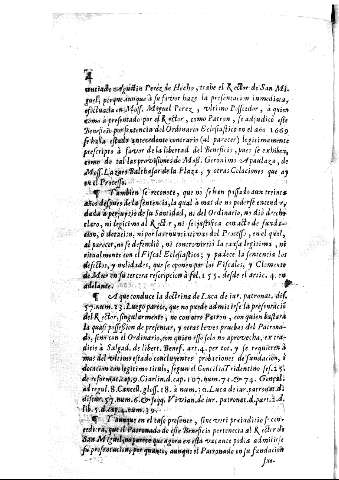 4
nunciado Agustin Perez de Hecho, trahe el Rector de San Mi-
guel, porque aunque à su favor haze la presentacion inmediata,
efectuada en Moss. Miguel Perez, ultimo Possedor, à quien
como à presentado por el Rector, como Patron, se adjudicó este
Beneficio por sentencia del Ordinario Eclesiastico en el año 1669
se halla estado antecedente contrario (al parecer) legitimamente
prescripto à favor de la libertad del Beneficio, pues se exhiben,
como de tal las provisiones de Moss. Geronimo Apaolaza, de
Moss. Lazaro Balthasar de la Plaza, y otras Colaciones que ay
en el Processo.
¶ Tambien se reconoce, que no se han passado aun treinta
años despues de la sentencia, la qual à mas de no poderse entender
dada à perjuyzio de la Santidad, ni del Ordinario, no dió derecho
claro, ni legitimo al Rector, ni se justifica con acto de funda-
cion, ò dotacion, ni por los meritos del Processo, en el qual,
al parecer, no se defendió, ni controvirtió la causa legitima, ni
ritualmente con el Fiscal Eclesiastico; y padece la sentencia los
defectos, y nulidades, que se oponen por los Fiscales, y Clemente
de Mur en su tercera rescripcion à fol. 155. desde el artic. 4. en
adelante.
¶ A que conduce la doctrina de Luca de iur. patronat. disc.
57. num. 13. Luego parte, que no puede admitirse la presentació
del Rector, singularmente, no constare Patron, con quien bastaria
la quasi possession de presentar, y otras leves pruebas del Patrona-
do, sino con el Ordinario, con quien esso solo no aprovecha, ex tra-
ditis à Salgad. de libert. Benef. art. 4. per tot. y se requieren à
mas del ultimo estado concluyentes probaciones de fundacion, ò
dotacion con legitimo titulo, segun el Concilio Tridentino ses. 25.
de reformat. cap. 9. Ciarlin. d. cap. 107. num. 71. & 74. Gonçal.
ad regul. 8. Cancel. gloss. 18. à num. 10. Luca de iur. patronat. di-
discur. 57. num. 6. & seqq. Vivian. de iur. patronat. d. part. 2. d.
lib. 5. d. cap. 4. num. 39.
¶ Y aunque en el caso presente, sine veri preiudicio se con-
cediera, que el Patronado de este Beneficio pertenecia al Rector de
San Miguel, no parece que agora en esta vacante podia admitirse
su presentacion, por quanto, aunque el Patronado en su fundacion
fue-